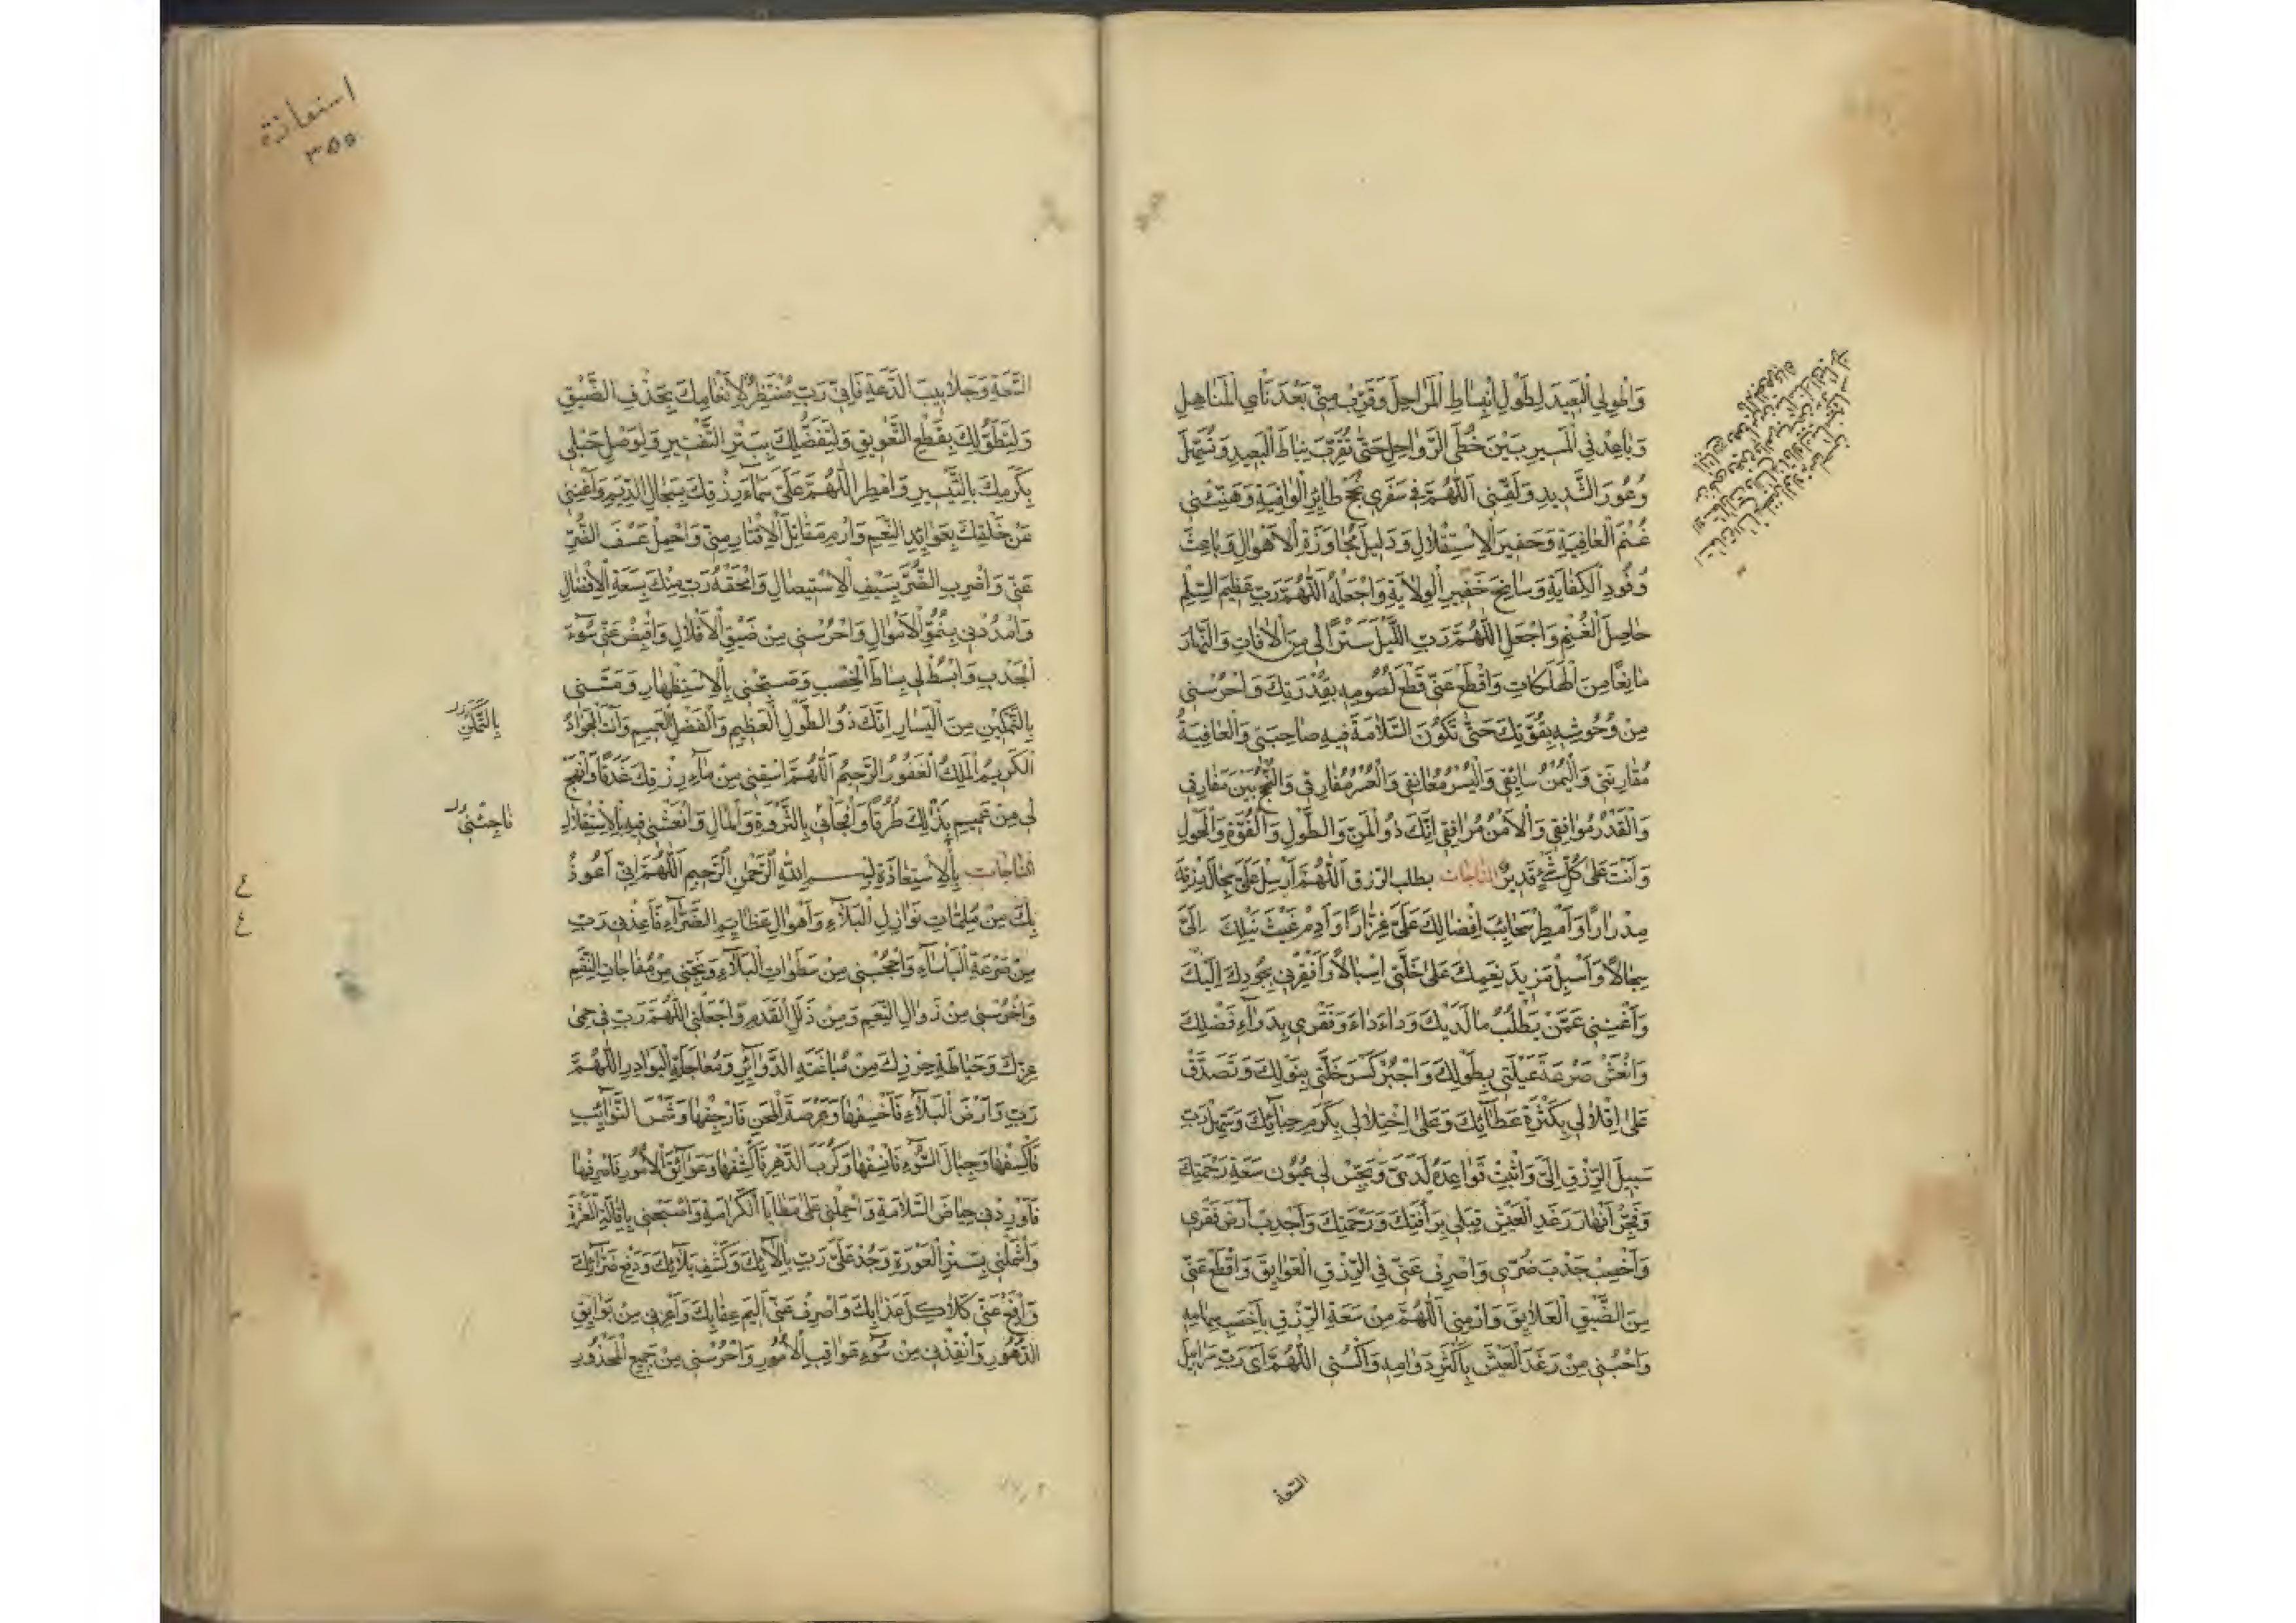 وَاطْوِلِي الْبَعِيدَ لِطُولِ انْبِسَاطِ الْمَرَاحِلِ وَقَرِّبْ مِنِّي بُعْدَ نَأْيِ الْمَنَاهِلِ
وَبَاعِدْ فِي الْمَسِيرِ بَيْنَ خُطَى الرَّوَاحِلِ حَتَّى تُقَرِّبَ نِيَاطَ الْبَعِيدِ وَتُسَهِّلَ
وُعُورَ الشَّدِيدِ وَلَقِّنِي اللَّهُمَّ فِي سَفَرِي نُجْحَ طَائِرِ الْوَاقِيَةِ وَهَنِّئْنِي
غُنْمَ الْعَافِيَةِ وَخَفِيرَ الْاِسْتِقْلَالِ وَدَلِيلَ مُجَاوَزَةِ الْأَهْوَالِ وَبَاعِثَ
وُفُودِ الْكِفَايَةِ وَسَانِحَ خَفِيرِ الْوِلَايَةِ وَاجْعَلْهُ اللَّهُمَّ رَبِّ عَظِيمَ السِّلْمِ
حَاصِلَ الْغُنْمِ وَاجْعَلِ اللَّهُمَّ رَبِّ اللَّيْلَ سِتْرًا لِي مِنَ الْآفَاتِ وَالنَّهَارَ
مَانِعًا مِنَ الْهَلَكَاتِ وَاقْطَعْ عَنِّي قِطَعَ لُصُوصِهِ بِقُدْرَتِكَ وَاحْرُسْنِي
مِنْ وُحُوشِهِ بِقُوَّتِكَ حَتَّى تَكُونَ السَّلَامَةُ فِيهِ صَاحِبَتِي وَالْعَافِيَةُ
مُقَارِنَتِي وَالْيُمْنُ سَائِقِي وَالْيُسْرُ مُعَانِقِي وَالْعُسْرُ مُفَارِقِي وَالنُّجْحُ بَيْنَ مَفَارِقِي
وَالْقَدَرُ مُوَافِقِي وَالْأَمْنُ مُرَافِقِي إِنَّكَ ذُو الْمَنِّ وَالطَّوْلِ وَالْقُوَّةِ وَالْحَوْلِ
وَأَنْتَ عَلَى كُلِّ شَيْءٍ قَدِيرٌ المناجات بطلب الرزق اَللَّهُمَّ أَرْسِلْ عَلَيَّ سِجَالَ رِزْقِكَ
مِدْرَارًا وَأَمْطِرْ سَحَائِبَ إِفْضَالِكَ عَلَيَّ غِزَارًا وَأَدِمْ غَيْثَ نَيْلِكَ إِلَيَّ
سِجَالًا وَأَسْبِلْ مَزِيدَ نِعَمِكَ عَلَى خَلَّتِي إِسْبَالًا وَأَفْقِرْنِي بِجُودِكَ إِلَيْكَ
وَأَغْنِنِي عَمَّنْ يَطْلُبُ مَا لَدَيْكَ وَدَاوِ دَاءَ فَقْرِي بِدَوَاءِ فَضْلِكَ
وَانْعَشْ صَرْعَةَ عَيْلَتِي بِطَوْلِكَ وَاجْبُرْ كَسْرَ خَلَّتِي بِنَوْلِكَ وَتَصَدَّقْ
عَلَى إِقْلَالِي بِكَثْرَةِ عَطَائِكَ وَعَلَى اخْتِلَالِي بِكَرَمِ حِبَائِكَ وَسَهِّلْ رَبِّ
سَبِيلَ الرِّزْقِ إِلَيَّ وَأَثْبِتْ قَوَاعِدَهُ لَدَيَّ وَبَجِّسْ لِي عُيُونَ سَعَةِ رَحْمَتِكَ
وَفَجِّرْ أَنْهَارَ رَغَدِ الْعَيْشِ قِبَلِي بِرَأْفَتِكَ وَرَحْمَتِكَ وَأَجْدِبْ أَرْضَ فَقْرِي
وَأَخْصِبْ جَدْبَ ضُرِّي وَاصْرِفْ عَنِّي فِي الرِّزْقِ الْعَوَائِقَ وَاقْطَعْ عَنِّي
مِنَ الضِّيقِ الْعَلَائِقَ وَارْمِنِي اللَّهُمَّ مِنْ سَعَةِ الرِّزْقِ بِأَخْصَبِ سِهَامِهِ
وَاحْبُنِي مِنْ رَغَدِ الْعَيْشِ بِأَكْثَرِ دَوَامِهِ وَاكْسُنِي اللَّهُمَّ أَيْ رَبِّ سَرَابِيلَ
السَّعَة
استعاذة
٣٥٥
السَّعَةِ وَجَلَابِيبَ الدَّعَةِ فَإِنِّي رَبِّ مُنْتَظِرٌ لِإِنْعَامِكَ بِحَذْفِ الضِّيقِ
وَلِتَطَوُّلِكَ بِقَطْعِ التَّعْوِيقِ وَلِتَفَضُّلِكَ بِبَتْرِ التَّقْتِيرِ وَلِوَصْلِ حَبْلِي
بِكَرَمِكَ بِالتَّيْسِيرِ وَامْطِرِ اللَّهُمَّ عَلَيَّ سَمَاءَ رِزْقِكَ بِسِجَالِ الدِّيَمِ وَأَغْنِنِي
عَنْ خَلْقِكَ بِعَوَائِدِ النِّعَمِ وَارْمِ مَقَاتِلَ الْإِقْتَارِ مِنِّي وَاحْمِلْ عَسْفَ الضُّرِّ
عَنِّي وَاضْرِبِ الضُّرَّ بِسَيْفِ الْاِسْتِيصَالِ وَامْحَقْهُ رَبِّ مِنْكَ بِسَعَةِ الْإِفْضَالِ
وَامْدُدْنِي بِنُمُوِّ الْأَمْوَالِ وَاحْرُسْنِي مِنْ ضِيقِ الْإِقْلَالِ وَاقْبِضْ عَنِّي سُوءَ
الْجَدْبِ وَابْسُطْ لِي بِسَاطَ الْخِصْبِ وَصَبِّحْنِي بِالْاِسْتِظْهَارِ وَمَسِّنِي
بِالتَّمْكِينِ مِنَ الْيَسَارِ إِنَّكَ ذُو الطَّوْلِ الْعَظِيمِ وَالْفَضْلِ الْعَمِيمِ وَأَنْتَ الْجَوَادُ
بِالتَّمَكُّنِ
الْكَرِيمُ الْمَلِكُ الْغَفُورُ الرَّحِيمُ اَللَّهُمَّ اسْقِنِي مِنْ مَاءِ رِزْقِكَ غَدَقًا وَانْهَجْ
لِي مِنْ عَمِيمِ بَذْلِكَ طُرُقًا وَافْجَأْنِي بِالثَّرْوَةِ وَالْمَالِ وَانْعَشْنِي فِيهِ بِالْاِسْتِقْلَالِ
المناجات بِالْاِسْتِعَاذَةِ بِسْمِ اللهِ الرَّحْمٰنِ الرَّحِيمِ اَللَّهُمَّ إِنِّي أَعُوذُ
بِكَ مِنْ مُلِمَّاتِ نَوَازِلِ الْبَلَاءِ وَأَهْوَالِ عَظَائِمِ الضَّرَّاءِ فَأَعِذْنِي رَبِّ
مِنْ صَرْعَةِ الْبَأْسَاءِ وَاحْجُبْنِي مِنْ سَطَوَاتِ الْبَلَاءِ وَنَجِّنِي مِنْ مُفَاجَاتِ النِّقَمِ
وَاحْرُسْنِي مِنْ زَوَالِ النِّعَمِ وَمِنْ زَلَلِ الْقَدَمِ وَاجْعَلْنِي اللَّهُمَّ رَبِّ فِي حِمَى
عِزِّكَ وَحِيَاطَةِ حِرْزِكَ مِنْ مُبَاغَتَةِ الدَّوَائِرِ وَمُعَاجَلَةِ الْبَوَادِرِ اللَّهُمَّ
رَبِّ وَأَرْضَ الْبَلَاءِ فَاخْسِفْهَا وَعَرْصَةَ الْمِحَنِ فَارْجُفْهَا وَشَمْسَ النَّوَائِبِ
فَاكْسِفْهَا وَجِبَالَ السُّوءِ فَانْسِفْهَا وَكُرَبَ الدَّهْرِ فَاكْشِفْهَا وَعَوَائِقَ الْأُمُورِ فَاصْرِفْهَا
فَأَوْرِدْنِي حِيَاضَ السَّلَامَةِ وَاحْمِلْنِي عَلَى مَطَايَا الْكَرَامَةِ وَاصْحَبْنِي بِإِقَالَةِ الْعَثْرَةِ
وَاشْمَلْنِي بِسَتْرِ الْعَوْرَةِ وَجُدْ عَلَيَّ رَبِّ بِآلَائِكَ وَكَشْفِ بَلَائِكَ وَدَفْعِ ضَرَّائِكَ
وَادْفَعْ عَنِّي كَلَاكِلَ عَذَابِكَ وَاصْرِفْ عَنِّي أَلِيمَ عِقَابِكَ وَأَعِذْنِي مِنْ بَوَائِقِ
الدُّهُورِ وَأَنْقِذْنِي مِنْ سُوءِ عَوَاقِبِ الْأُمُورِ وَاحْرُسْنِي مِنْ جَمِيعِ الْمَحْذُورِ